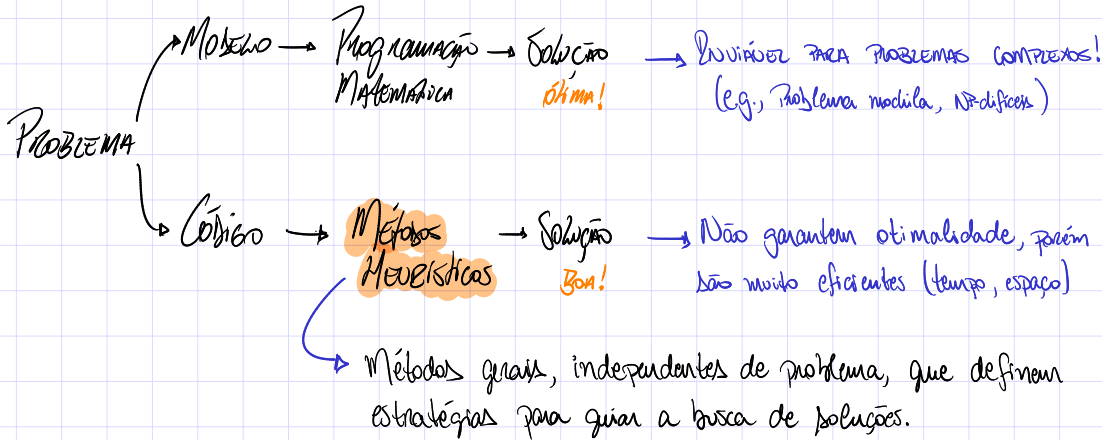 PROBLEMA
MODELO → PROGRAMAÇÃO MATEMÁTICA → SOLUÇÃO ÓTIMA! → INVIÁVEL PARA PROBLEMAS COMPLEXOS!
(e.g., Problema mochila, NP-difíceis)
CÓDIGO → MÉTODOS HEURÍSTICOS → SOLUÇÃO BOA! → Não garantem otimalidade, porém
são muito eficientes (tempo, espaço)
Métodos gerais, independentes de problema, que definem
estratégias para guiar a busca de soluções.